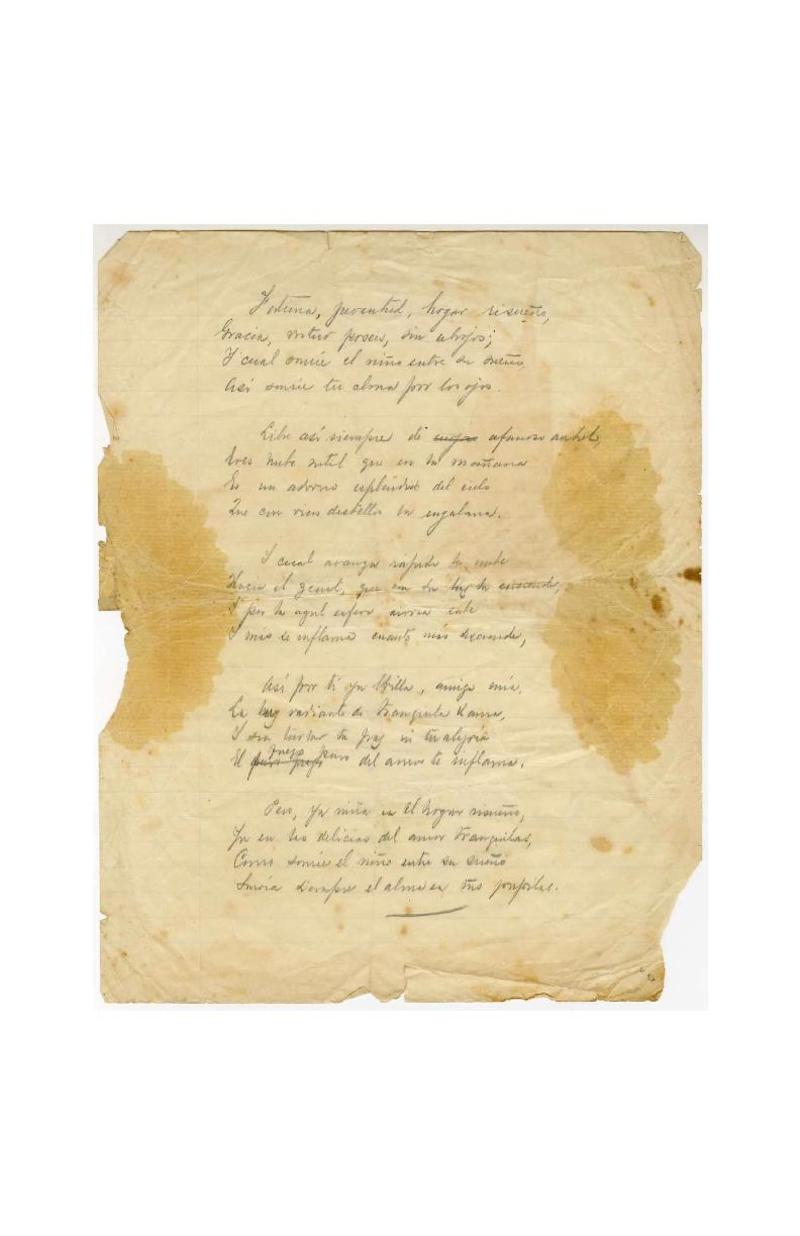 Fortuna, juventud, hogar risueño,
Gracia, virtud posees, sin abrojos;
I cual sonrie el niño entre su sueño
Así sonrie tu alma por los ojos.
Libre así siempre de afanoso anhelo,
Eres nube sutil que en la mañana
Es un adorno espléndido del cielo
Que con ricos destellos la engalana.
I cual avanza rápida la nube
Hacia el zenit, que en su luz la enciende,
I por la azul esfera sube
I más se inflama cuanto más
Así por ti ya brilla, amiga mia,
La luz radiante de tranquila llama,
I sin turbar tu paz ni tu alegria
El fuego puro del amor te inflama.
Pero, ya niña en el hogar risueño,
Ya en las delicias del amor tranquilas,
Como sonrie el niño entre su sueño
Sonria siempre el alma en tus pupilas.